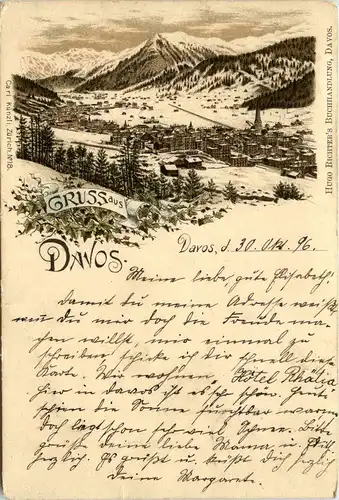 Carl Künzli, Zürich. No 8.
HUGO RICHTER'S BUCHHANDLUNG, DAVOS.
GRUSS aus
DAVOS.
Davos, d. 30. Okt. 96.
Meine liebe, gute Elisabeth!
Damit du meine Adresse weißt,
wen du mir doch die Freude ma-
chen willst, mir einmal zu
schreiben, schicke ich dir schnell diese
Karte. Wir wohnen Hôtel Rhätia
hier in davos ist es sehr schön. Heute
schien die Sonne furchtbar warm
doch lag schon sehr viel Schnee. Bitte
grüße deine liebe Mama u.
herzlich. Es grüßt u. küßt dich herzlich
deine Margarete.